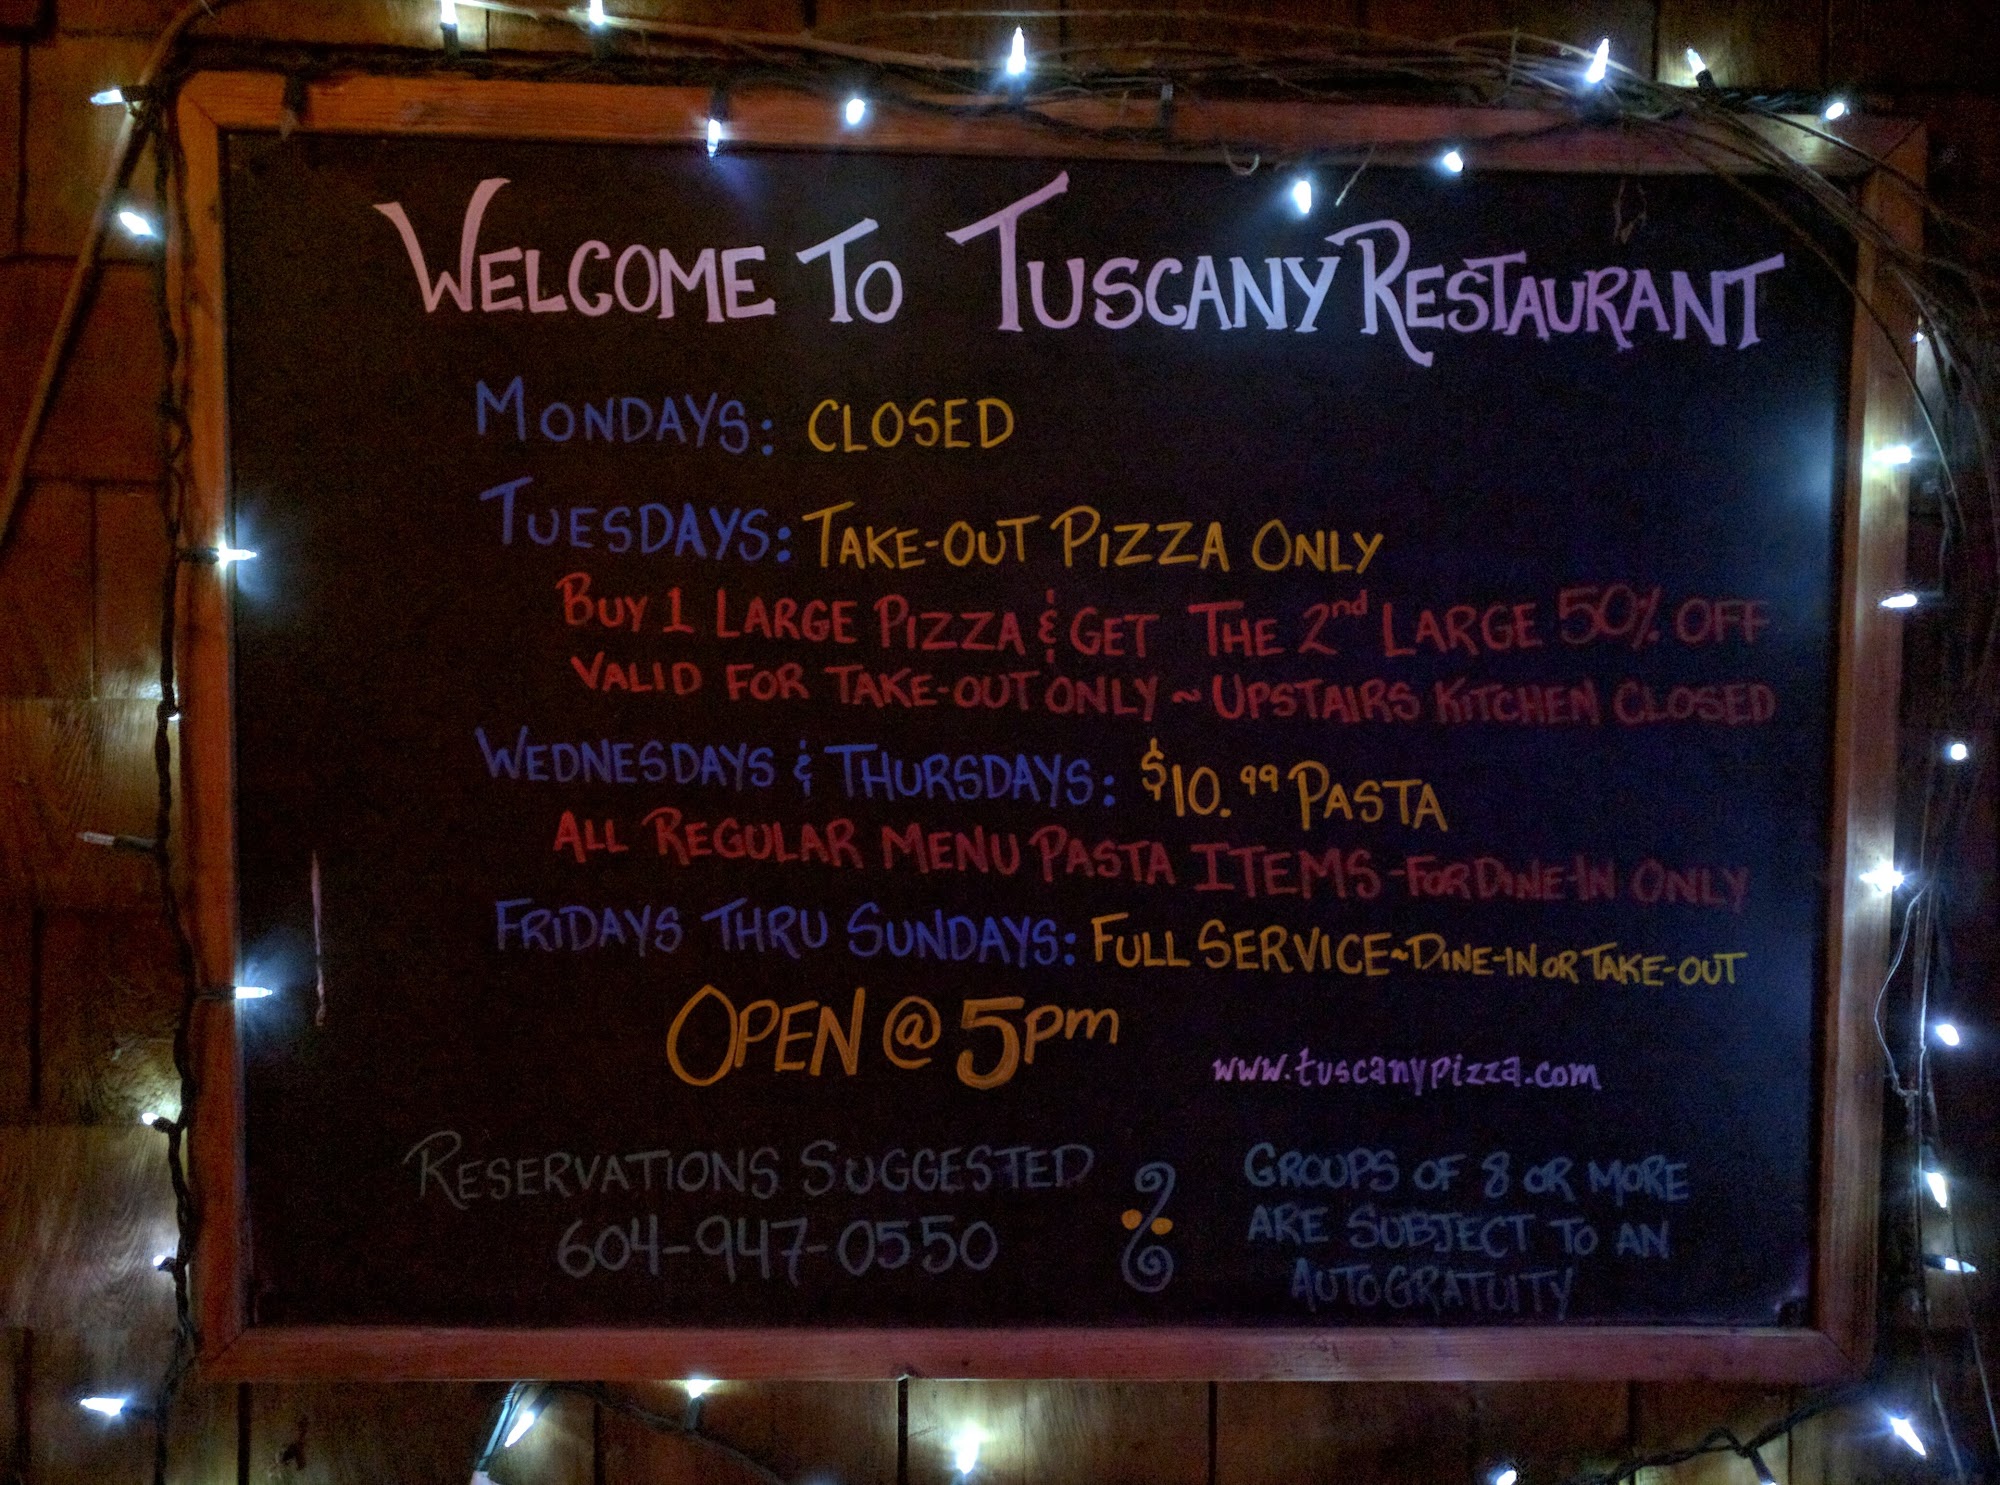 WELCOME TO TUSCANY RESTAURANT
MONDAYS: CLOSED
TUESDAYS: TAKE-OUT PIZZA ONLY
BUY 1 LARGE PIZZA & GET THE 2nd LARGE 50% OFF
VALID FOR TAKE-OUT ONLY ~ UPSTAIRS KITCHEN CLOSED
WEDNESDAYS & THURSDAYS: $10.99 PASTA
ALL REGULAR MENU PASTA ITEMS - FOR DINE-IN ONLY
FRIDAYS THRU SUNDAYS: FULL SERVICE ~ DINE-IN OR TAKE-OUT
OPEN @ 5pm
www.tuscanypizza.com
RESERVATIONS SUGGESTED
604-947-0550
GROUPS OF 8 OR MORE
ARE SUBJECT TO AN
AUTOGRATUITY